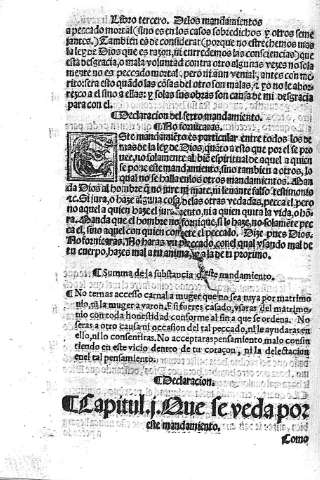 Libro tercero. De los mandamientos
a peccado mortal (sino es en los casos sobredichos y otros seme
jantes.) Tambien es de considerar (porque no estrechemos mas
la ley de Dios que es razon, ni enrredemos las consciencias) que
esta desgracia, o mala voluntad contra otro algunas vezes no sola
mente no es peccado mortal, pero ni aun venial, antes con me
rito: sera esto quãdo las cosas del otro son malas, y yo no le abor
rezco a el sino a ellas: y solas sus obras son causa de mi desgracia
para con el.
¶Declaracion del sexto mandamiento.
No fornicaras.
Este mandamiẽto es particular entre todos los de
mas de la ley de Dios, quãto a esto que por el se pro
uee, no solamente al biẽ espiritual de aquel a quien
se pone este mandamiento, sino tambien a otros, lo
qual no se halla en los otros mandamientos. Man
da Dios al hombre q̃ no jure ni mate, ni leuante falso testimonio
&c. Si jura, o haze alguna cosa de las otras vedadas, pecca el: pero
no aquel a quien haze el juramento, ni a quien quita la vida, o hõ
ra. Manda que el hombre no fornique, si lo haze, no solamẽte pec
ca el, sino aquel con quien comete el peccado. Dize pues Dios.
No fornicaras. No haras vn peccado, con el qual vsando mal de
tu cuerpo, hazes mal a tu anima, y a la de tu proximo.
¶Summa de la substancia deste mandamiento.
¶No ternas accesso carnal a muger que no sea tuya por matrimo
nio, ni la muger a varon. E si fueres casado, vsaras del matrimo
nio con toda honestidad conforme al fin a que se ordena. No
seras a otro causa ni occasion del tal peccado, ni le ayudaras en
ello, ni lo consentiras. No acceptaras pensamiento malo consin
tiendo en este vicio dentro de tu coraçon, ni la delectacion
en el tal pensamiento.
¶Declaracion.
¶Capitul. j. Que se veda por
este mandamiento.
Como